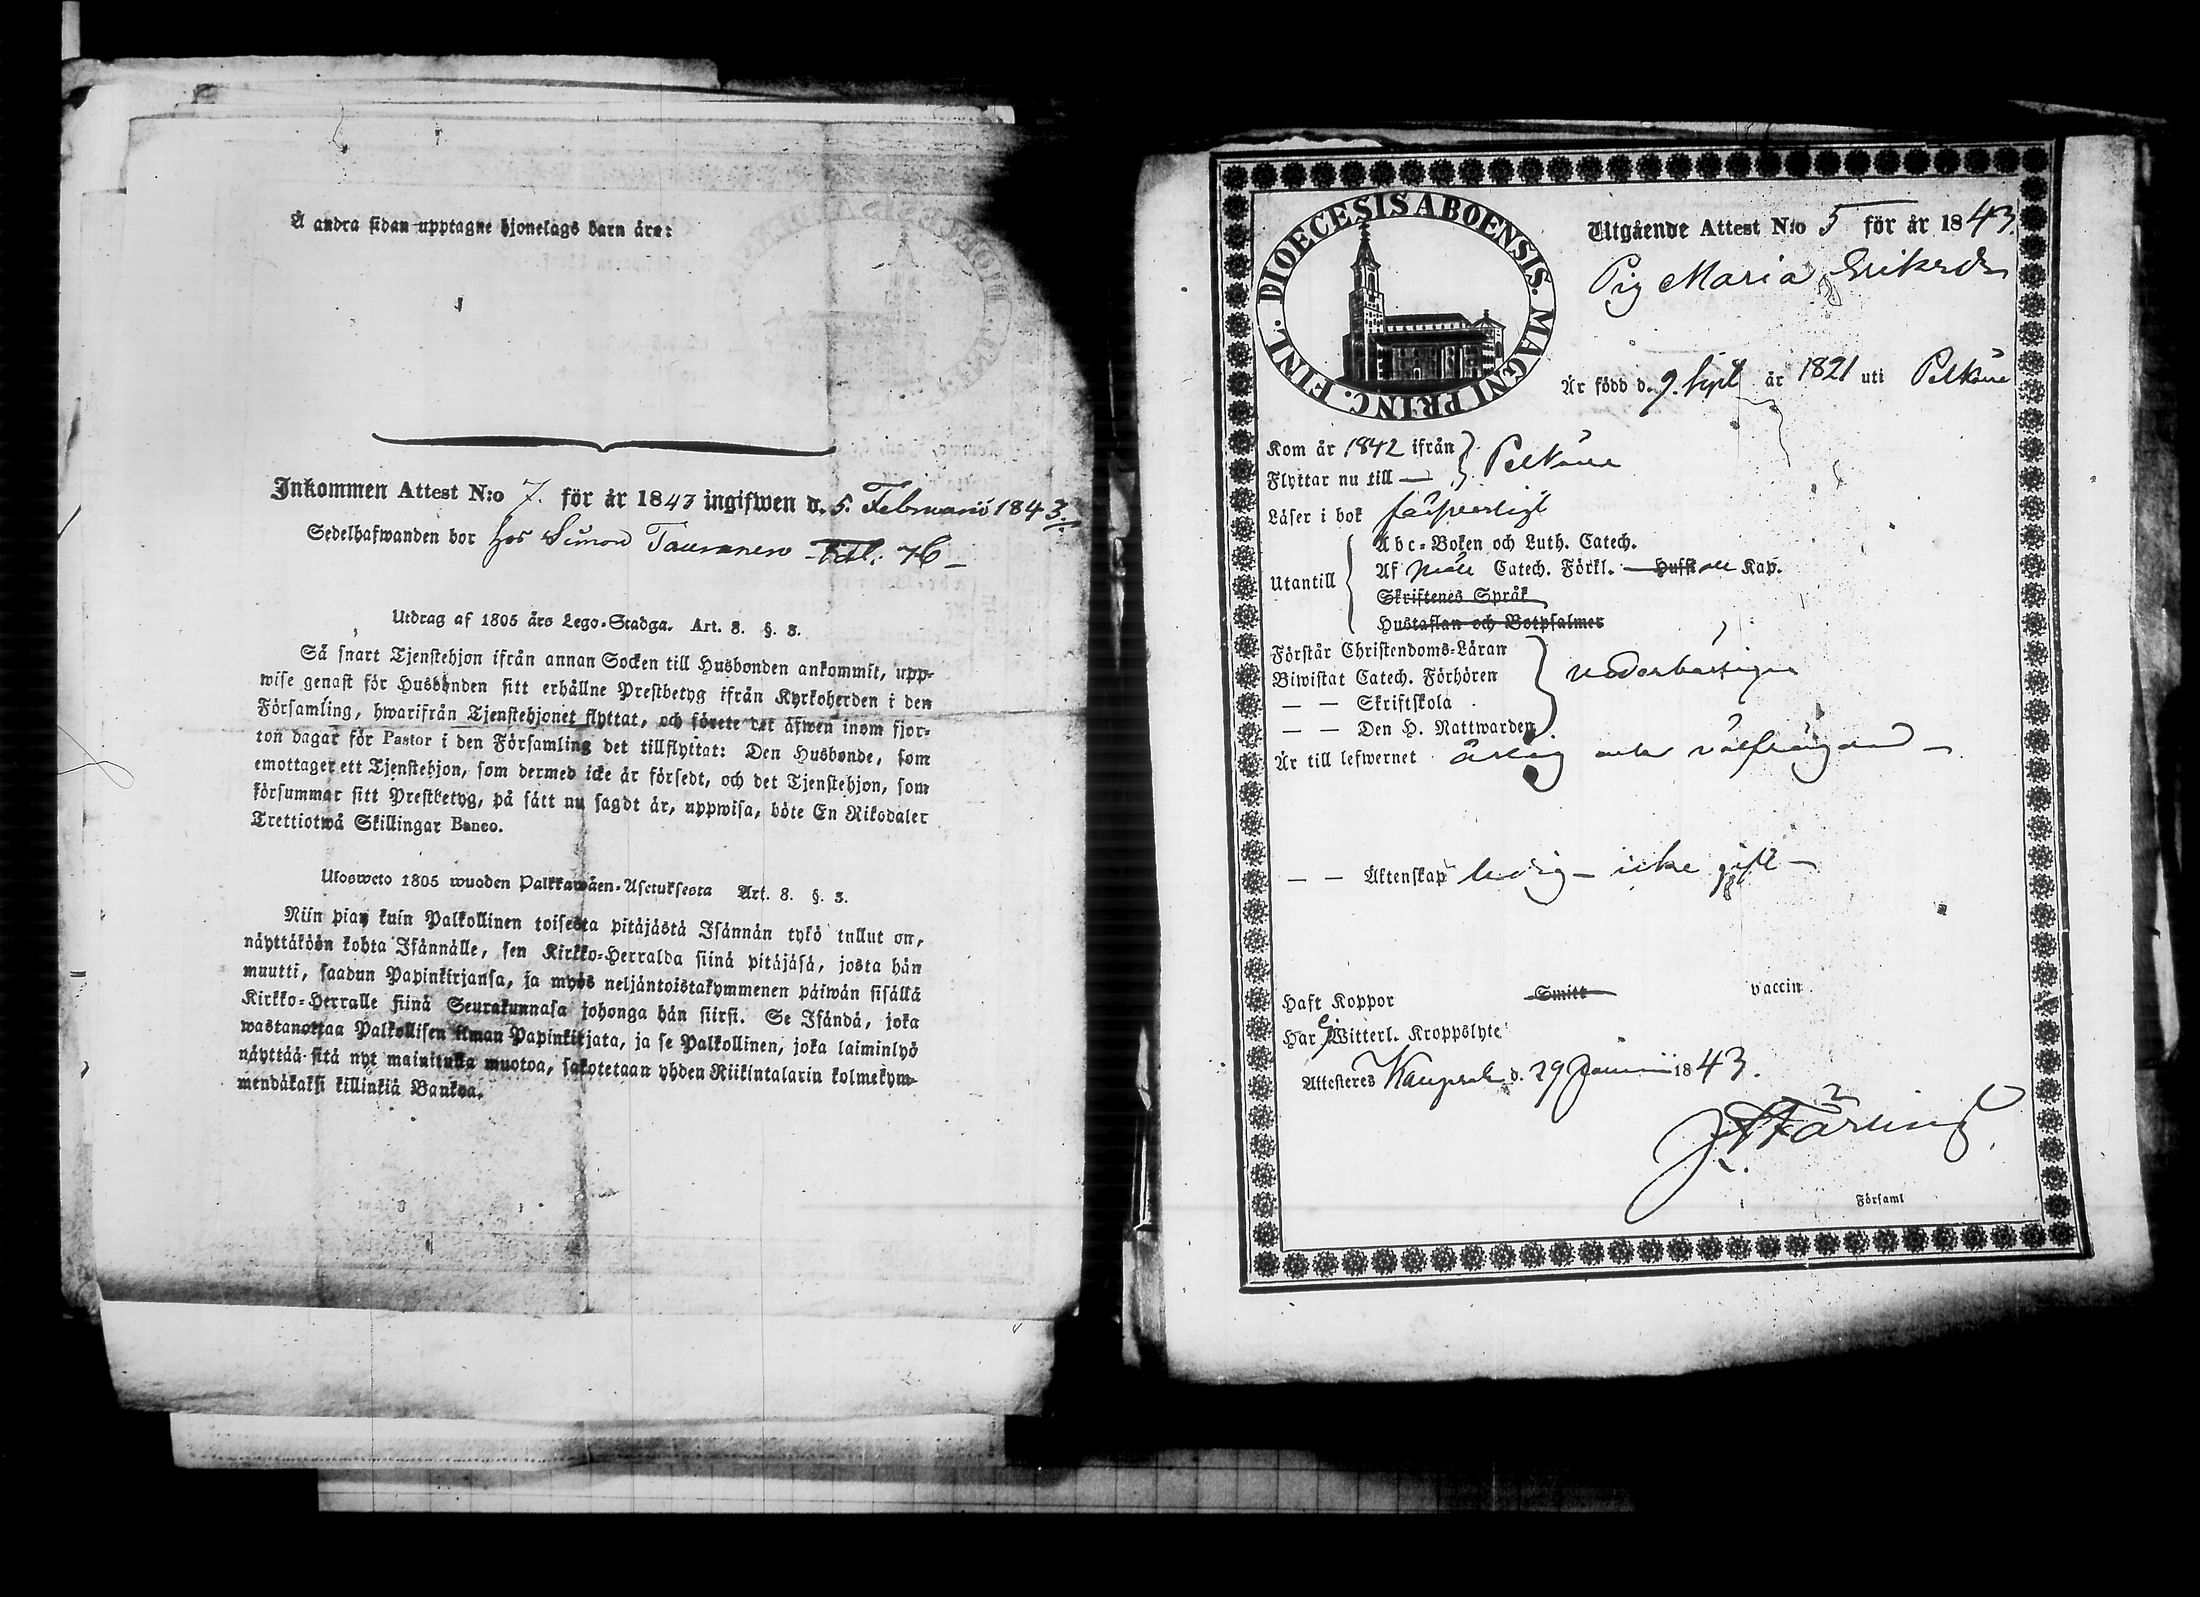 Å andra sidan upptagne hjonelags barn äro:
Inkommen Attest N:o 7. för år 1843 ingifwen d. 5. Februarii 1843.
Sedelhafwanden bor hos Simon Tauranen
Utdrag af 1805 års Lego-Stadga. Art. 8. §. 3.
Så snart Tjenstehjon ifrån annan Socken till Husbonden ankommit, upp-
wise genast för Husbonden sitt erhållne Prestbetyg ifrån Kyrkoherden i den
Församling, hwarifrån Tjenstehjonet flyttat, och förete det äfwen inom fjor-
ton dagar för Pastor i den Församling det tillflyttat: Den Husbonde, som
emottager ett Tjenstehjon, som dermed icke är försedt, och det Tjenstehjon, som
försummar sitt Prestbetyg, på sätt nu sagdt är, uppwisa, böte En Riksdaler
Trettiotwå Skillingar Banco.
Ulosweto 1805 wuoden Palkkawäen-Asetuksesta Art. 8. §. 3.
Niin pian kuin Palkollinen toisesta pitäjästä Isännän tykö tullut on,
näyttäköön kohta Isännälle, sen Kirkko-Herralda siinä pitäjäsä, josta hän
muutti, saadun Papinkirjansa, ja myös neljäntoistakymmenen päiwän sisällä
Kirkko-Herralle siinä Seurakunnasa johonga hän siirsi. Se Isändä, joka
wastanottaa Palkollisen ilman Papinkirjata, ja se Palkollinen, joka laiminlyö
näyttää sitä nyt mainitulla muotoa, sakotetaan yhden Riikintalarin kolmekym-
mendäkaksi killinkiä Bankoa.
DIOECESIS ABOENSIS. MAGNI PRINC. FINL.
Utgående Attest N:o 5 för år 1843.
Pig Maria Eriksdr
Är född d. 9. Sept år 1821 uti Pelkäne
Kom år 1842 ifrån
Flyttar nu till — Pelkäne
Läser i bok försvarligt
Abc-Boken och Luth. Catech.
Utantill Af Catech. Förkl. — Husst Kap.
Skriftenes Språk
Hustaflan och Botpsalmer
Förstår Christendoms-Läran
Biwistat Catech. Förhören
— — Skriftskola
— — Den H. Nattwarden
Är till lefwernet ärlig och välfrägdad —
— — Äktenskap ledig — icke gift —
Haft Koppor Smitt vaccin
Har ej Witterl. Kroppslyte
Attesteres d. 29 Januarii 1843.
Församl